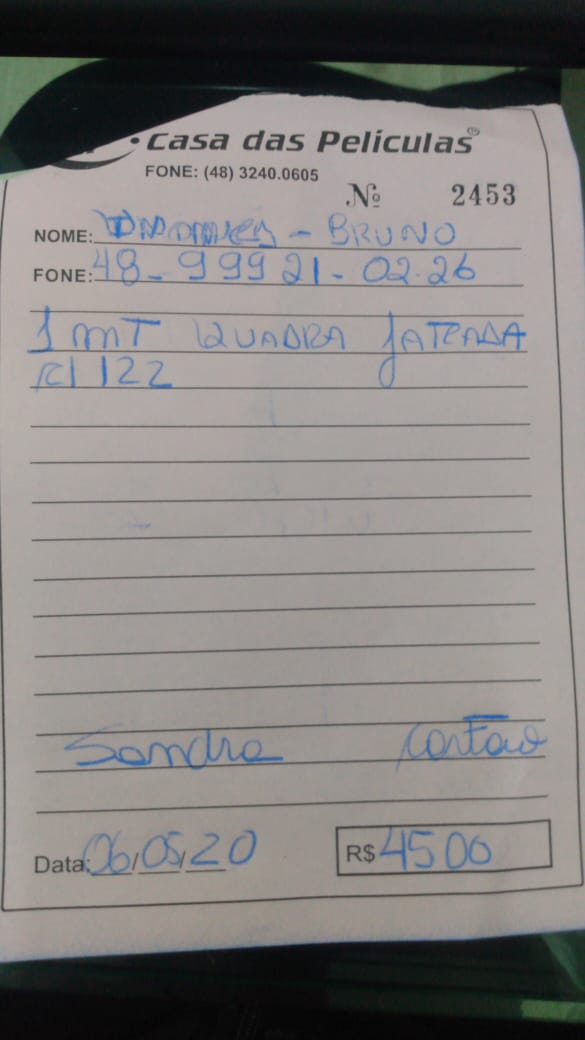 Casa das Películas®
FONE: (48) 3240.0605
Nº 2453
NOME: - BRUNO
FONE: 48-99921-02.26
1 MT QUADRA JATEADA
c/ 122
Sandra cartão
Data: 06/05/20 R$ 4500